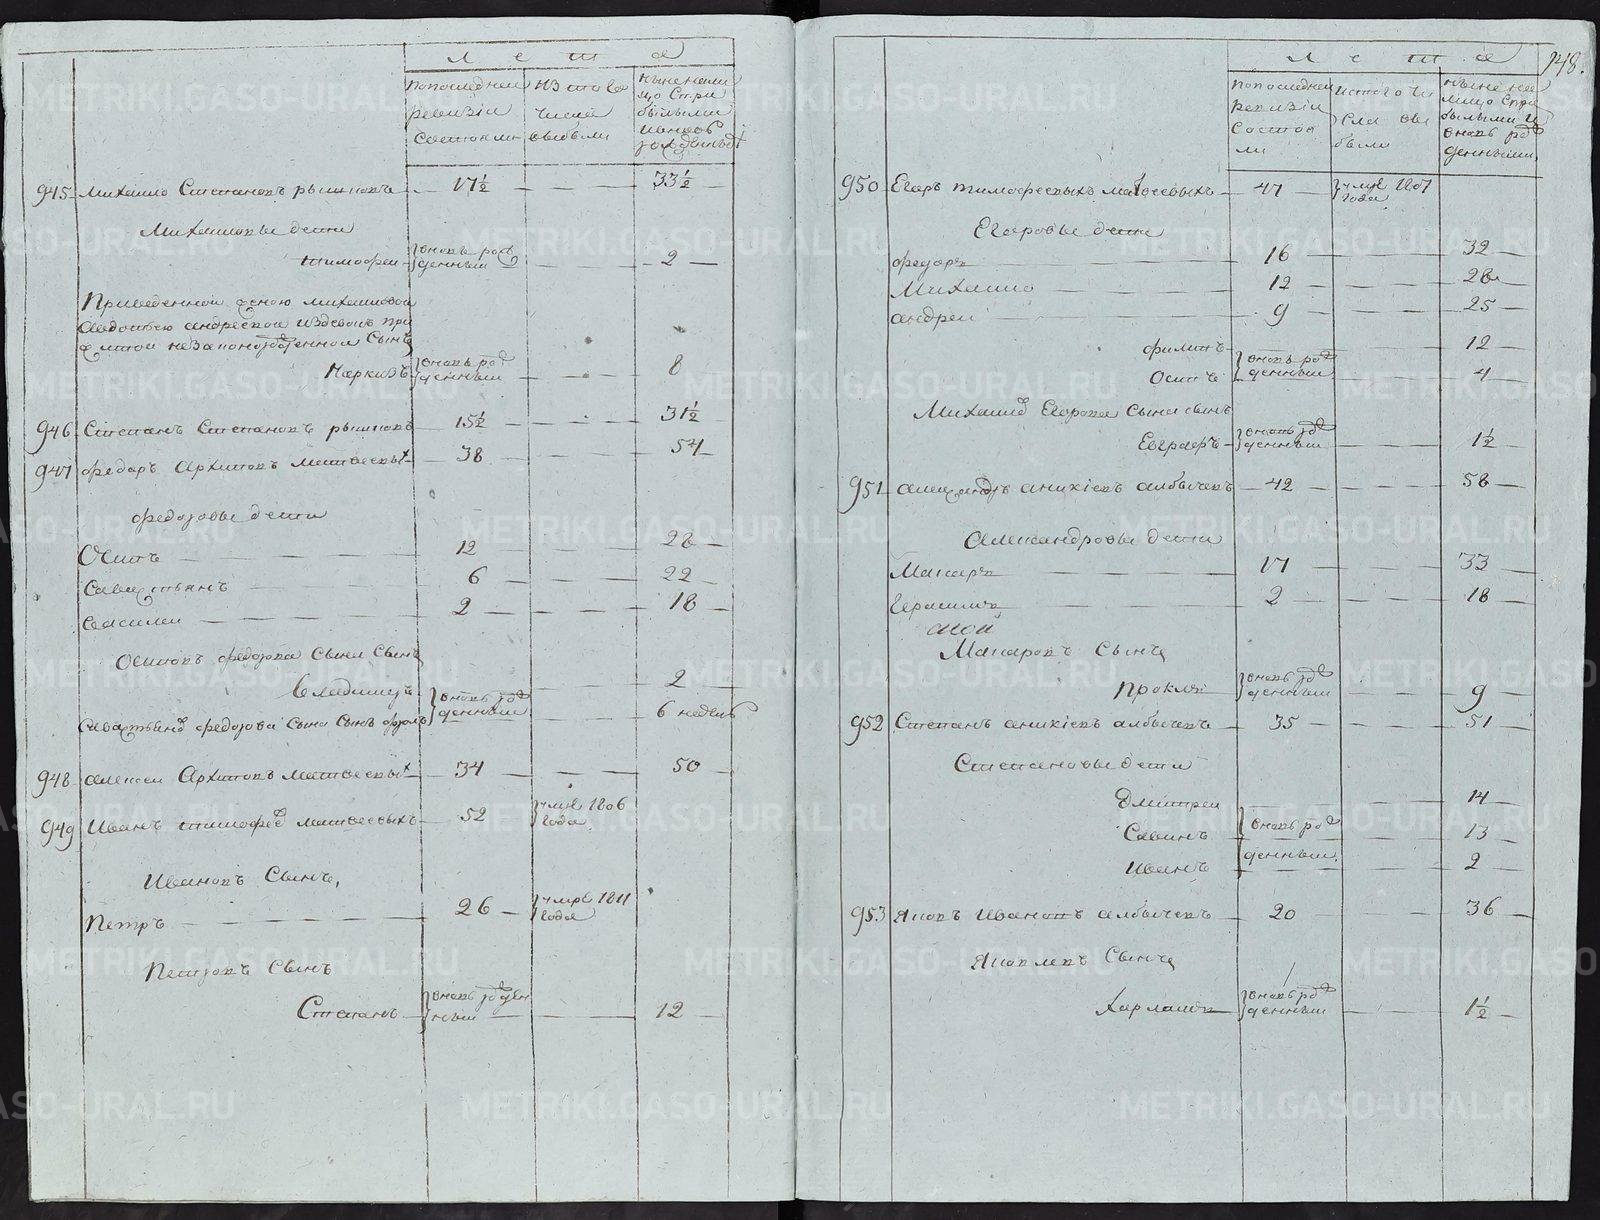 Лета
по последней ревизіи состояли
из того числа выбыли
ныне налицо с прибылыми и вновь рожденными
945 Михайло Степановъ рышковъ — 17½ — 33½
Михаиловы дети
тимофеи — вновь рожденный — 2
Приведенной женою михаиловой
авдотьею андреевой
сынъ
Маркизъ — вновь рожденный — 8
946 Степанъ Степановъ рышковъ — 15½ — 31½
947 федоръ Архиповъ матвеевыхъ — 38 — 54
федоровы дети
Осипъ — 12 — 28
Савастьянъ — 6 — 22
василеи — 2 — 18
Осиповъ федорова сына сынъ
владимиръ — вновь рожденный — 2
федорова сына сынъ фролъ — 6 недель
948 алексеи Архиповъ матвеевыхъ — 34 — 50
949 Иванъ тимофеевъ матвеевыхъ — 52 — умре 1806 года
Ивановъ Сынъ
Петръ — 26 — умре 1811 года
Петровъ Сынъ
Степанъ — вновь рожденный — 12
948.
Лета
по последней ревизіи состояли
ис того числа выбыли
ныне на лицо с прибылыми и вновь рожденными
950 Егоръ тимофеевыхъ матвеевыхъ — 47 — умре 1807 года
Егоровы дети
федоръ — 16 — 32
Михаило — 12 — 28
андреи — 9 — 25
филипъ — 12
Осипъ — вновь рожденный — 4
Михаила Егорова сына сынъ
Евграфъ — вновь рожденный — 1½
951 александръ аникіевъ албычевъ — 42 — 58
Александровы дети
Макаръ — 17 — 33
Герасимъ — 2 — 18
Макаровъ Сынъ
Проклъ — вновь рожденный — 9
952 Степанъ аникіевъ албычевъ — 35 — 51
Степановы дети
Дмитреи — 14
Савинъ — вновь рожденный — 13
Иванъ — 2
953 Яковъ Ивановъ албычевъ — 20 — 36
Яковлевъ Сынъ
Харлампъ — вновь рожденный — 1½
METRIKI.GASO-URAL.RU